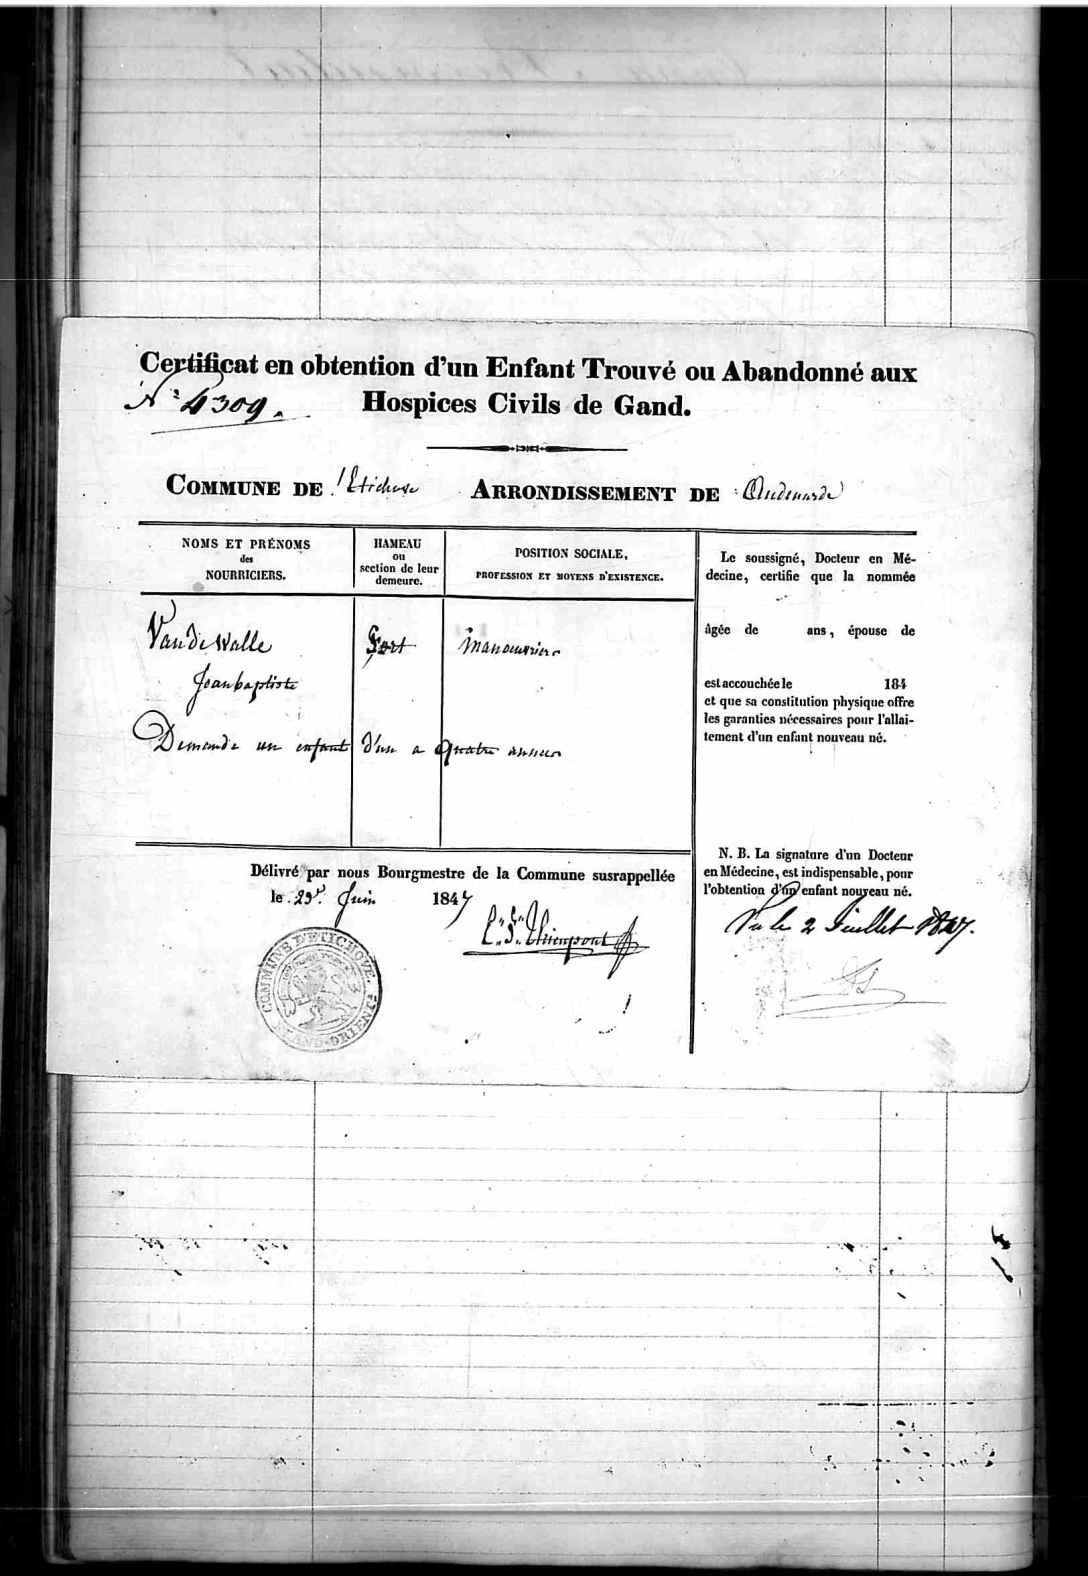 Certificat en obtention d'un Enfant Trouvé ou Abandonné aux
N° 4309.
Hospices Civils de Gand.
COMMUNE DE Etichove ARRONDISSEMENT DE Audenarde
NOMS ET PRÉNOMS
des
NOURRICIERS.
HAMEAU
ou
section de leur
demeure.
POSITION SOCIALE,
PROFESSION ET MOYENS D'EXISTENCE.
Van de Walle
Jean baptiste
manouvrier
Demande un enfant d'un a quatre annees
Le soussigné, Docteur en Mé-
decine, certifie que la nommée
âgée de ans, épouse de
est accouchée le 184
et que sa constitution physique offre
les garanties nécessaires pour l'allai-
tement d'un enfant nouveau né.
N. B. La signature d'un Docteur
en Médecine, est indispensable, pour
l'obtention d'un enfant nouveau né.
Vu le 2 Juillet 1847.
Délivré par nous Bourgmestre de la Commune susrappellée
le 29 Juin 1847
Thienpont
COMMUNE D'ETICHOVE.
FLAND. ORIENT.